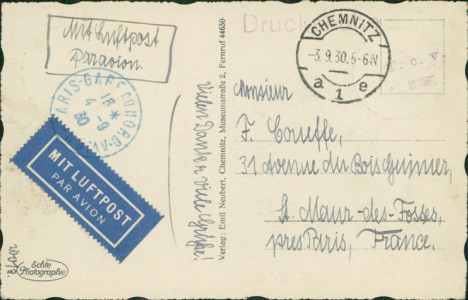 Mit Luftpost
Par avion.
Druck
CHEMNITZ
-3.9.30.5-6N
a 1 e
PARIS-GARE DU NORD
18*
4-9
30
MIT LUFTPOST
PAR AVION
Echte
Photographie
Verlag: Emil Neubert, Chemnitz, Museumstraße 2, Fernruf 44650
Vielen Dank
Monsieur
F. Coueffe,
31 Avenue du Bois Guimier,
St. Maur-des-Fossés,
près Paris, France.